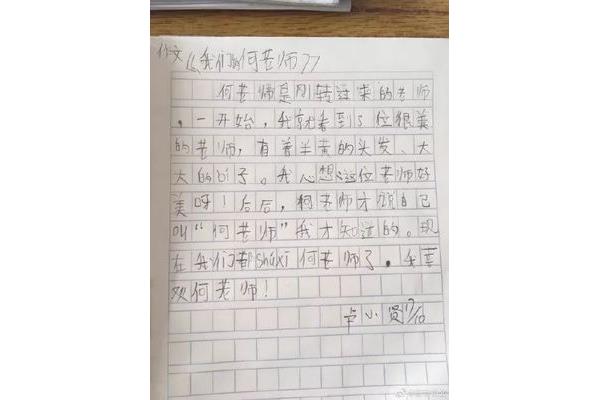 作文《我们的何老师》
何老师是刚转过来的老师
。一开始,我就看到了位很美
的老师,有着半黄的头发、大
大的bí子。我心想:这位老师好
美呀!后后,何老师才说自己
叫“何老师”我才知道的。现
在我们都shúxi何老师了。我喜
欢何老师!
卢小贤